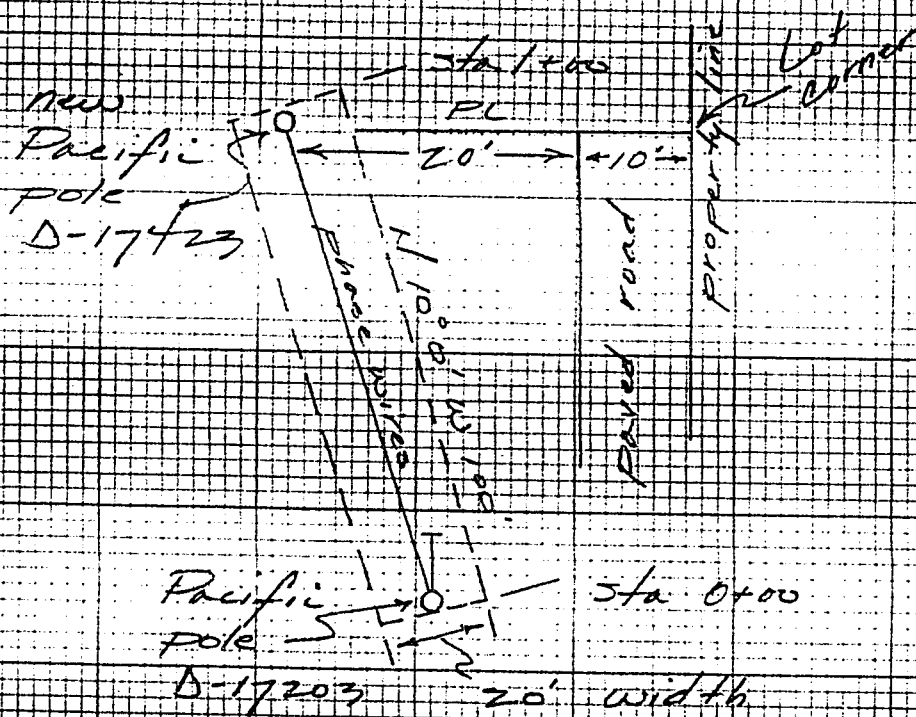 Lot
corner
Sta 1+00
PL
new
Pacific
pole
D-17423
20'
10'
property line
Paved road
phase wires
N 10° 0' W 100'
Pacific
pole
D-17203
Sta 0+00
20' width